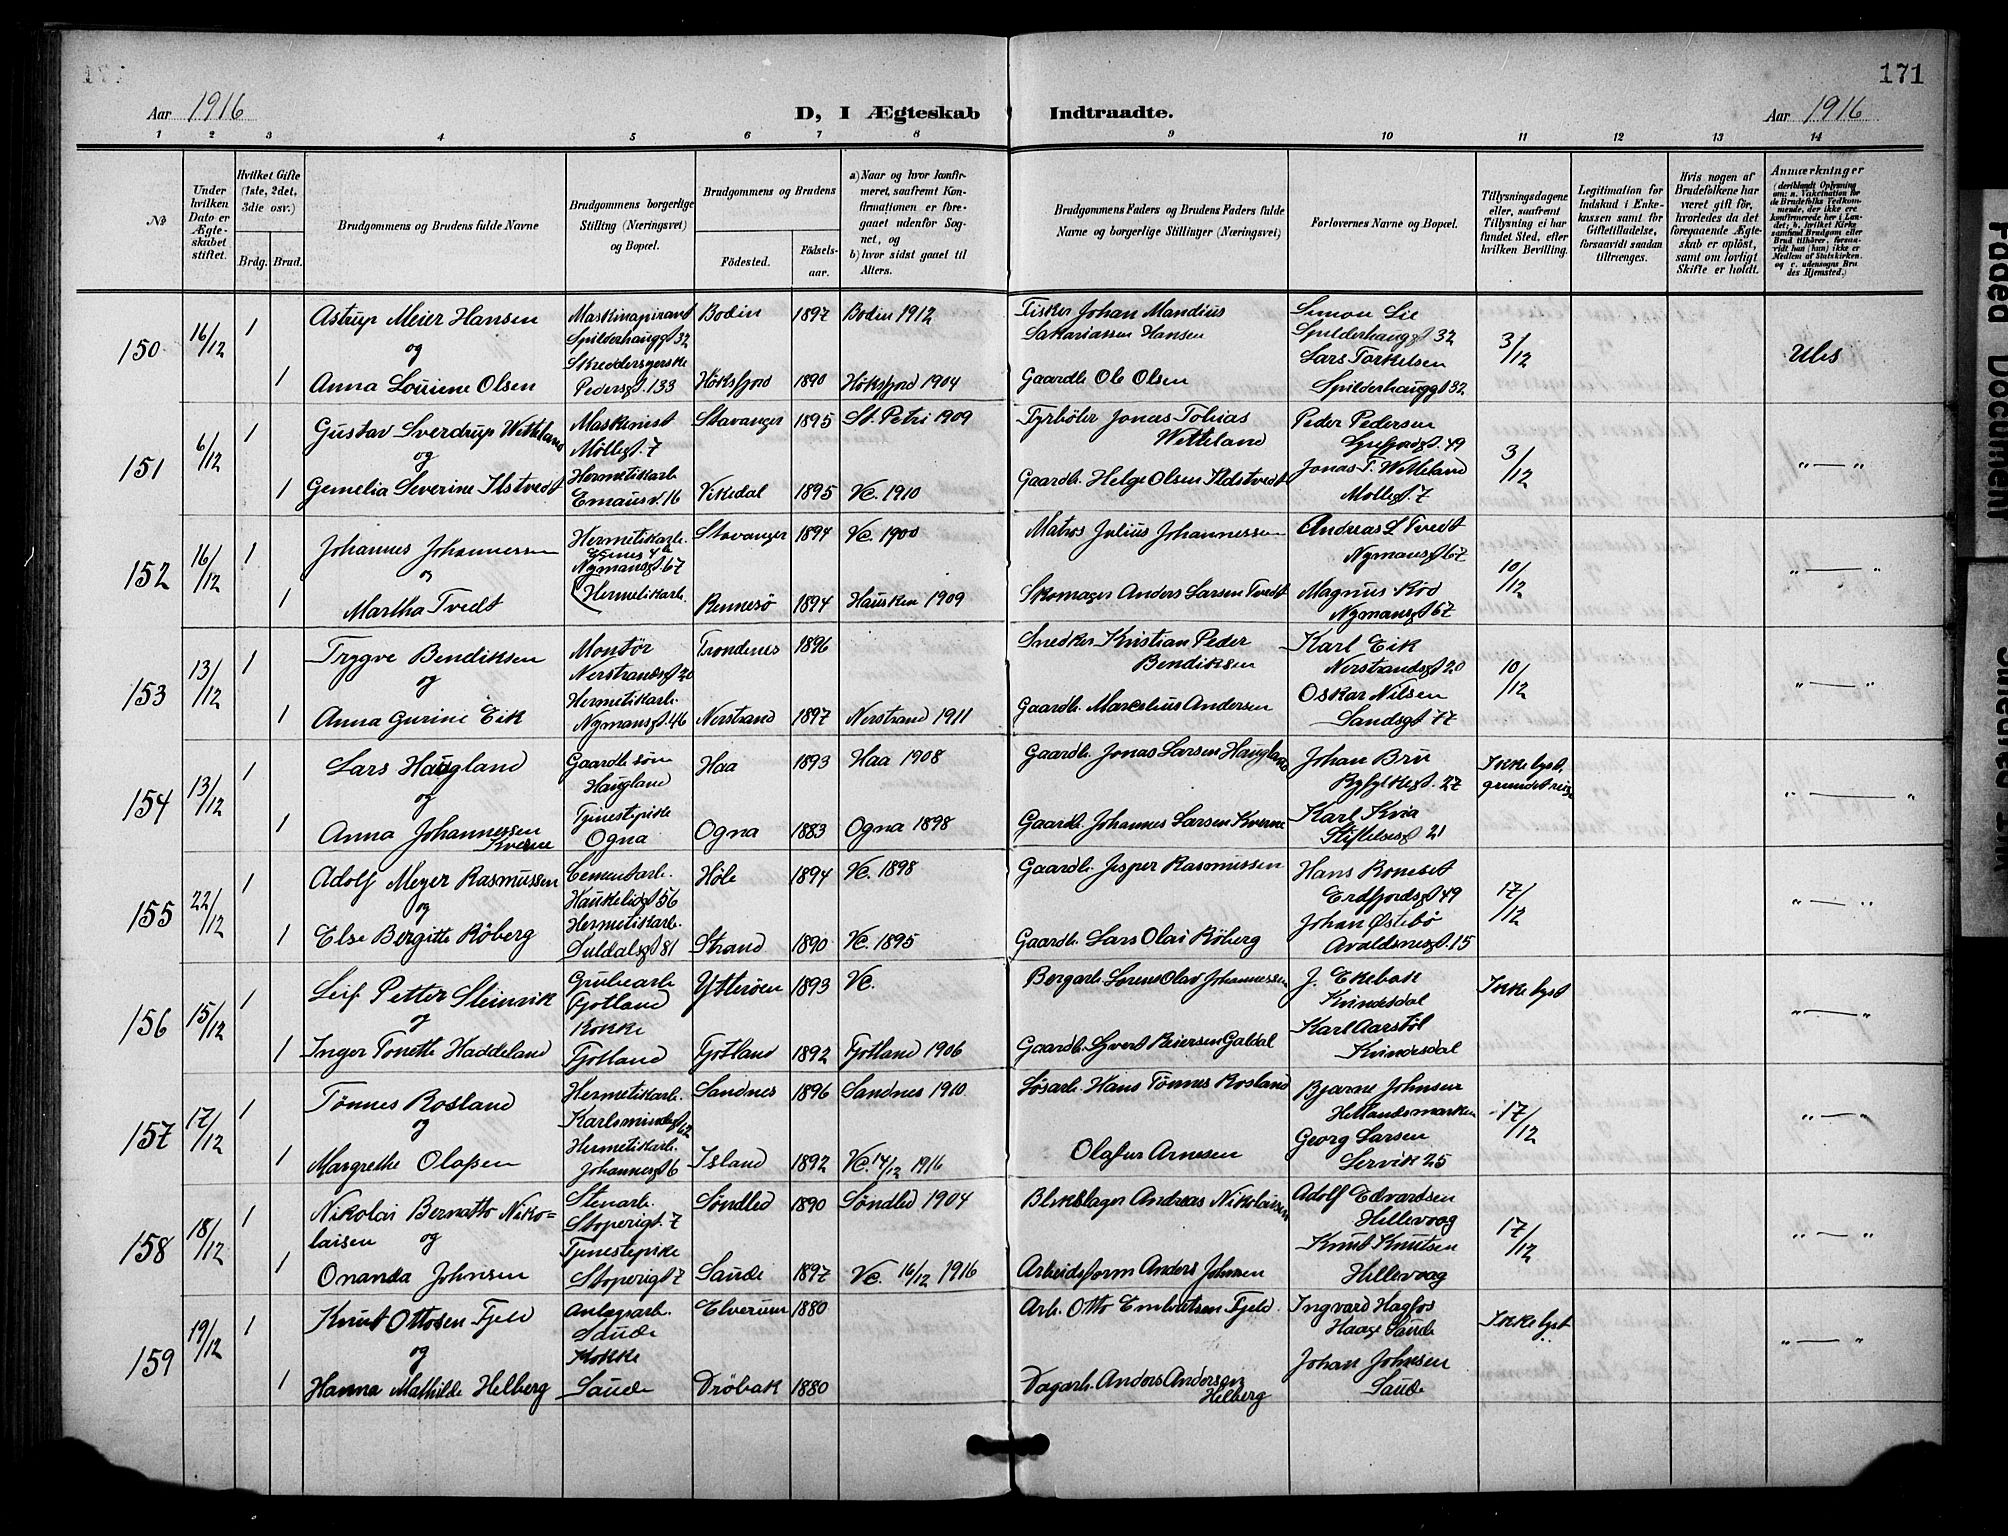 171
Aar 1916
D, I Ægteskab Indtraadte.
Aar 1916
1 2 3 4 5 6 7 8 9 10 11 12 13 14
No
Under hvilken Dato er Ægteskabet stiftet.
Hvilket Gifte (1ste, 2det, 3die osv.)
Brdg. Brud.
Brudgommens og Brudens fulde Navne
Brudgommens borgerlige Stilling (Næringsvei) og Bopæl.
Brudgommens og Brudens
Fødested.
Fødselsaar.
a) Naar og hvor konfirmeret, saafremt Konfirmationen er foregaaet udenfor Sognet, og
b) hvor sidst gaaet til Alters.
Brudgommens Faders og Brudens Faders fulde Navne og borgerlige Stillinger (Næringsvei)
Forlovernes Navne og Bopæl.
Tillysningsdagene eller, saafremt Tillysning ei har fundet Sted, efter hvilken Bevilling.
Legitimation for Indskud i Enkekassen samt for Giftetilladelse, forsaavidt saadan tiltrænges.
Hvis nogen af Brudefolkene har været gift før, hvorledes da det foregaaende Ægteskab er opløst, samt om lovligt Skifte er holdt.
Anmærkninger
150 16/12 1
Astrup Meier Hansen
og
1 Anna Louiene Olsen
Maskinaspirant
Spilderhauggt 32
Skreddersyerske
Pedersgt. 133
Bodin 1897 Bodin 1912
Höksfjord 1890 Höksfjord 1904
Fisker Johan Mandius
Sakariassen Hansen
Gaardb. Ole Olsen
Simon Lie
Spilderhauggt 32
Lars Torkelsen
Spilderhauggt 32
3/12
Ubs
151 6/12 1
Gustav Sverdrup Wetteland
og
1 Gemelia Severine Ilstvedt
Maskinist
Møllegt. 7
Hermetikarb.
Emausv. 16
Stavanger 1895 St. Petri 1909
Vikedal 1895 Vc. 1910
Fyrbøter Jonas Tobias
Wetteland
Gaardb. Helge Olsen Ilstvedt
Peder Pedersen
Lysefjordgt. 49
Jonas T. Wetteland
Møllegt 7
3/12
" — "
152 16/12 1
Johannes Johannessen
og
1 Martha Tvedt
Hermetikarb.
Nymansgt. 67
Hermetikarb.
Stavanger 1894 Vc. 1900
Rennesö 1894 Hausken 1909
Matros Julius Johannessen
Skomager Anders Larsen Tvedt
Andreas L Tvedt
Nymansgt 67
Magnus Rød
Nymansgt 67
10/12
" — "
153 13/12 1
Trygve Bendiksen
og
1 Anna Gurine Eik
Montör
Nerstrandsgt 20
Hermetikarb.
Nymansgt. 46
Trondenes 1896
Nerstrand 1897 Nerstrand 1911
Snedker Kristian Peder
Bendiksen
Gaardb. Marselius Andersen
Karl Eik
Nerstrandsgt 20
Oskar Nilsen
Sandsgt 77
10/12
" — "
154 13/12 1
Lars Haugland
og
1 Anna Johannessen
Kverne
Gaardb. søn
Haugland
Tjenestepike
Ogna
Haa 1893 Haa 1908
Ogna 1883 Ogna 1898
Gaardb. Jonas Larsen Haugland
Gaardb. Johannes Larsen Kverne
Johan Bru
Ryfylkegt. 27
Karl Kvia
Stiftelsesgt 21
Ikke lyst,
grundet reise
" — "
155 22/12 1
Adolf Meyer Rasmussen
og
1 Else Bergitte Röberg
Cementarb.
Haukeligt 56
Hermetikarb.
Suldalsgt 81
Höle 1894 Vc. 1898
Strand 1890 Vc. 1895
Gaardb. Jesper Rasmussen
Gaardb. Lars Olai Röberg
Hans Romset
Erdfjordsgt 49
Johan Østebö
Avaldsnesgt. 15
17/12
" — "
156 15/12 1
Leif Petter Steinvik
og
1 Inger Tonette Haddeland
Grubearb.
Fjotland
Kokke
Fjotland
Ytterøen 1893 Vc.
Fjotland 1892 Fjotland 1906
Bergarb. Lorens Olav Johannessen
Gaardb. Syvert Reiersen Galdal
J. Ekebak
Kvinesdal
Karl Aarstöl
Kvindesdal
Ikke lyst
" — "
157 17/12 1
Tönnes Rosland
og
1 Margrethe Olafsen
Hermetikarb.
Karlsmindegt 62
Hermetikarb.
Johannesgt 6
Sandnes 1896 Sandnes 1910
Island 1892 Vc. 14/12 1916
Løsarb. Hans Tönnes Rosland
Olafur Arnesen
Bjarne Johnsen
Hetlandsmarken
Georg Larsen
Lervik 25
17/12
" — "
158 18/12 1
Nikolai Bernatto Niko=
laisen og
1 Onanda Johnsen
Stenarb.
Stoperigt. 7
Tjenestepike
Stoperigt 7
Søndled 1890 Søndled 1904
Saude 1897 Vc. 16/12 1916
Blikslager Andreas Nikolaisen
Arbeidsform. Anders Johnsen
Adolf Edvardsen
Hillevaag
Knut Knutsen
Hillevaag
17/12
" — "
159 19/12 1
Knut Ottosen Fjeld
og
1 Hanna Mathilde Helberg
Anlægsarb.
Saude
Kokke
Saude
Elverum 1880
Dröbak 1880
Arb. Otto Embretsen Fjeld.
Dagarb. Anders Andersen
Helberg
Ingvard Hagfos
Haage Saude
Johan Johnsen
Saude
Ikke lyst
" — "
Faded Document